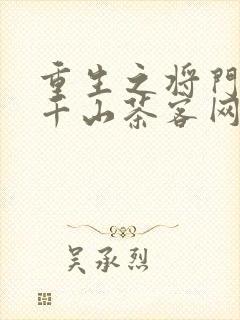 重生之将门
千山茶客网
吴承烈